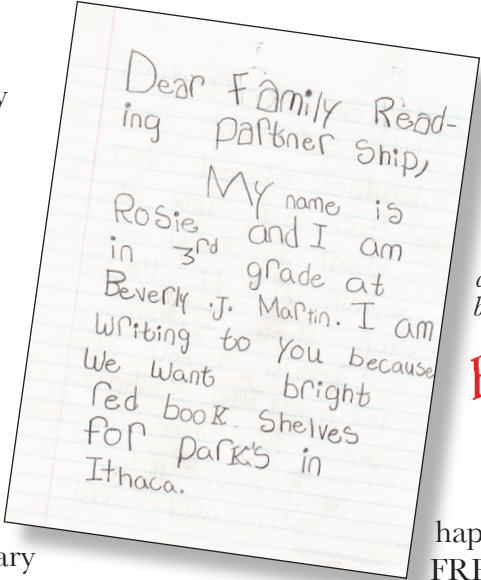 Dear Family Read-
ing partner ship,
My name is
Rosie and I am
in 3rd grade at
Beverly .J. Martin. I am
writing to you because
We want bright
red book shelves
for park's in
Ithaca.
ary
hap
FRE